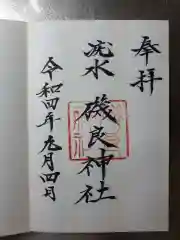 奉拝
疣水
磯良神社
令和四年九月四日